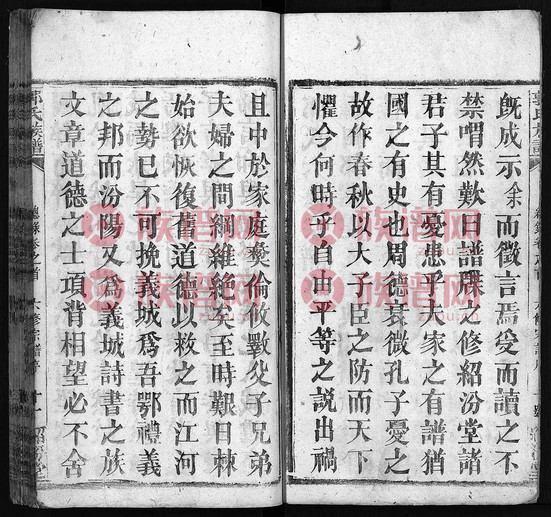 既成示余而徵言焉受而讀之不
禁喟然歎曰譜牒之修紹汾堂諸
君子其有憂患乎夫家之有譜猶
國之有史也周德衰微孔子憂之
故作春秋以大子臣之防而天下
懼今何時乎自由平等之説出禍
且中於家庭彜倫攸斁父子兄弟
夫婦之間綱維絶矣至時艱日棘
始欲恢復舊道德以救之而江河
之勢已不可挽義城爲吾鄂禮義
之邦而汾陽又爲義城詩書之族
文章道德之士項背相望必不舍
郭氏族譜
總錄卷之首
六修宗譜序
十一
族普网
族普网
族普网
族普网